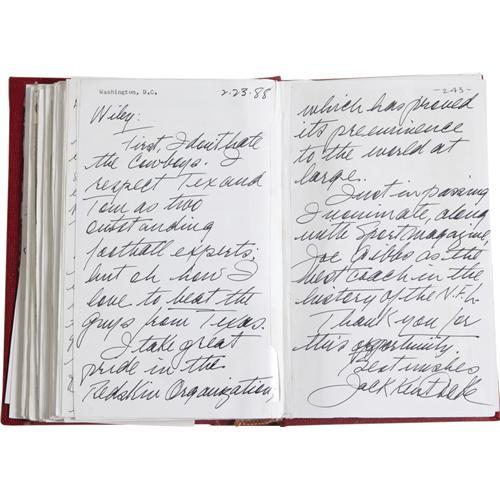 Washington, D.C. 2.23.88
Wiley:
First, I don't hate
the Cowboys. I
respect Tex and
Tom as two
outstanding
football experts;
but oh how I
love to beat the
guys from Texas.
I take great
pride in the
Redskin Organization,
-243-
which has proved
its preeminence
to the world at
large.
Just in passing
I nominate, along
with Sport magazine,
Joe Gibbs as the
best coach in the
history of the N.F.L.
Thank you for
this opportunity
Best wishes
Jack Kent Cooke